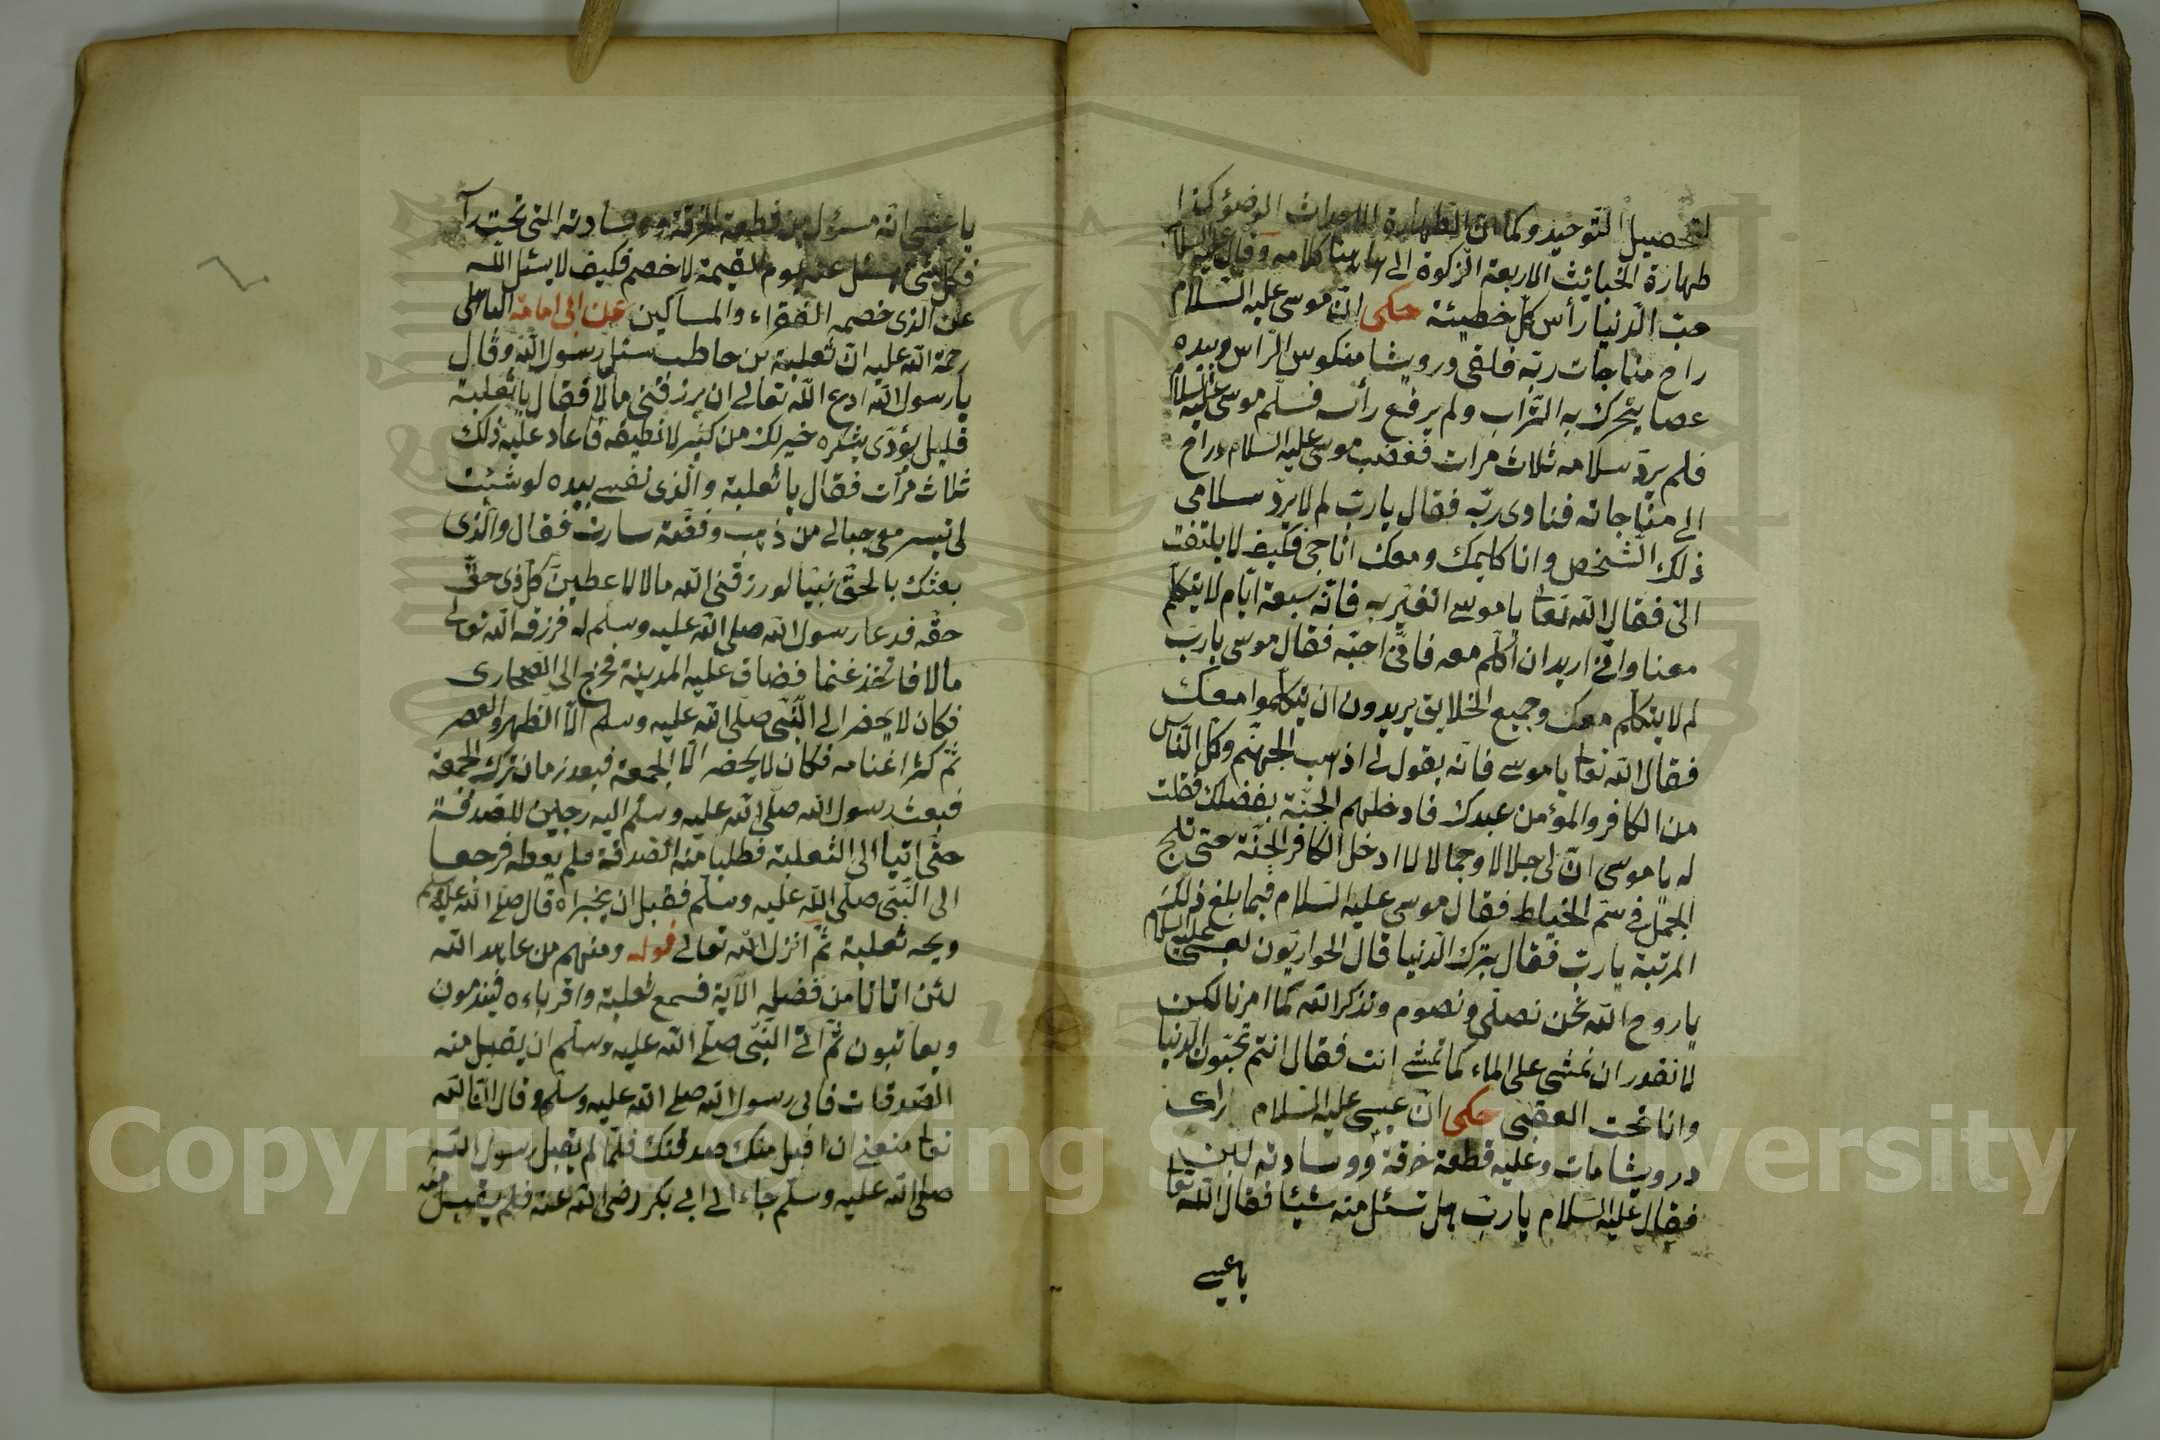 لتحصيل التوحيد وكما ان الطهارة للاحداث الوضوء كذا
طهارة الخبائث الاربعة الزكوة الى هاهنا كلامه وقال عليه السلام
حبّ الدنيا رأس كل خطيئة حكى انّ موسى عليه السلام
راح مناجات ربه فلقى درويشا منكوس الرأس وبيده
عصا يتحرك به التراب ولم يرفع رأسه فسلّم موسى عليه السلام
فلم يردّ سلامه ثلاث مرات فغضب موسى عليه السلام وراح
الى مناجاته فنادى ربه فقال يا رب لم لا يردّ سلامى
ذلك الشخص وانا كليمك ومعك اناجى فكيف لا يلتفت
الىّ فقال الله تعا يا موسى اتغيّر به فانّه سبعة ايّام لا يتكلم
معنا وانّى اريد ان اكلم معه فانّى احبّه فقال موسى يا رب
لم لا يتكلم معك وجميع الخلايق يريدون ان يتكلموا معك
فقال الله تعا يا موسى فانّه يقول لى اذهب الجهنّم وكل الناس
من الكافر والمؤمن عبدك فادخلهم الجنّة بفضلك فقلت
له يا موسى انّ لى جلالا وجمالا لا ادخل الكافر الجنّة حتى يلج
الجمل فى سمّ الخياط فقال موسى عليه السلام فبما بلغ ذلك
المرتبة يا رب فقال بترك الدنيا قال الحواريون لعيسى عليه السلام
يا روح الله نحن نصلى ونصوم ونذكر الله كما امرنا لكن
لا نقدر ان نمشى على الماء كما تمشى انت فقال انتم تحبّون الدنيا
وانا تحت العقبى حكى انّ عيسى عليه السلام رأى
درويشا مات وعليه قطعة خرقة ووسادته لبن
فقال عليه السلام يا رب هل تسئل منه شيئا فقال الله تعا
يا عيسى
يا عيسى انّه مسؤل من قطعة الخرقة ووسادته التى تحت رأ
فكل شئ يسئل عنه يوم القيمة لا خصم فكيف لا يسئل الله
عن الذى خصمه الفقراء والمساكين عن ابى امامة الباهلى
رحمة الله عليه انّ ثعلبة بن حاطب سئل رسول الله وقال
يا رسول الله ادع الله تعالى ان يرزقنى مالا فقال يا ثعلبة
قليل يؤدّى شكره خير لك من كثير لا تطيقه فاعاد عليه ذلك
ثلاث مرّات فقال يا ثعلبة والذى نفسى بيده لو شئت
لى تسير معى جبالى من ذهب وفضّة سارت فقال والذى
بعثك بالحقّ نبيّا لو رزقنى الله مالا لاعطينّ كل ذى حقّ
حقّه فدعا رسول الله صلى الله عليه وسلم له فرزقه الله تعالى
مالا فاتخذ غنما فضاق عليه المدينة فخرج الى الصحارى
فكان لا يحضر الى النّبى صلى الله عليه وسلم الّا الظهر والعصر
ثمّ كثر اغنامه فكان لا يحضر الّا الجمعة فبعد زمان ترك الجمعة
فبعث رسول الله صلى الله عليه وسلم اليه رجلين للصدقة
حتى اتيا الى الثعلبة فطلبا منه الصدقة فلم يعطه فرجعا
الى النّبى صلى الله عليه وسلم فقبل ان يخبراه قال صلى الله عليه وسلم
ويحه ثعلبة ثمّ انزل الله تعالى قوله ومنهم من عاهد الله
لئن اتانا من فضله الآية فسمع ثعلبة واقرباءه فيندمون
ويعاتبون ثمّ اتى النّبى صلى الله عليه وسلم ان يقبل منه
الصدقات فابى رسول الله صلى الله عليه وسلم وقال انّ الله
تعا منعنى ان اقبل منك صدقتك فلمّا لم يقبل رسول الله
صلى الله عليه وسلم جاء الى ابى بكر رضى الله عنه فلم يقبل منه
Copyright © King Saud University